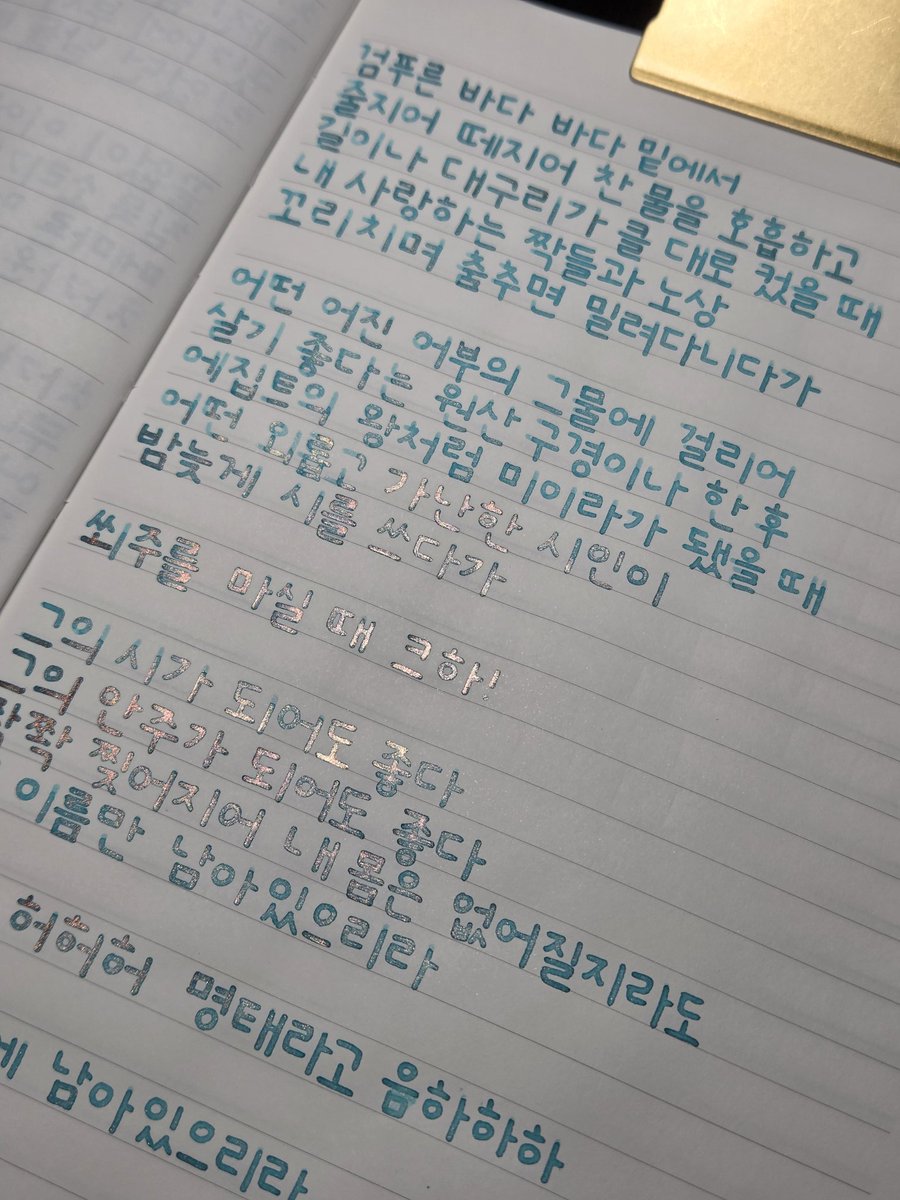 검푸른 바다 바다 밑에서
줄지어 떼지어 찬 물을 호흡하고
길이나 대구리가 클 대로 컸을 때
내 사랑하는 짝들과 노상
꼬리치며 춤추면 밀려다니다가
어떤 어진 어부의 그물에 걸리어
살기 좋다는 원산 구경이나 한 후
에집트의 왕처럼 미이라가 됐을 때
어떤 외롭고 가난한 시인이
밤늦게 시를 쓰다가
쐬주를 마실 때 크하!
그의 시가 되어도 좋다
그의 안주가 되어도 좋다
짝짝 찢어지어 내 몸은 없어질지라도
이름만 남아있으리라
허허허 명태라고 음하하하
남아있으리라